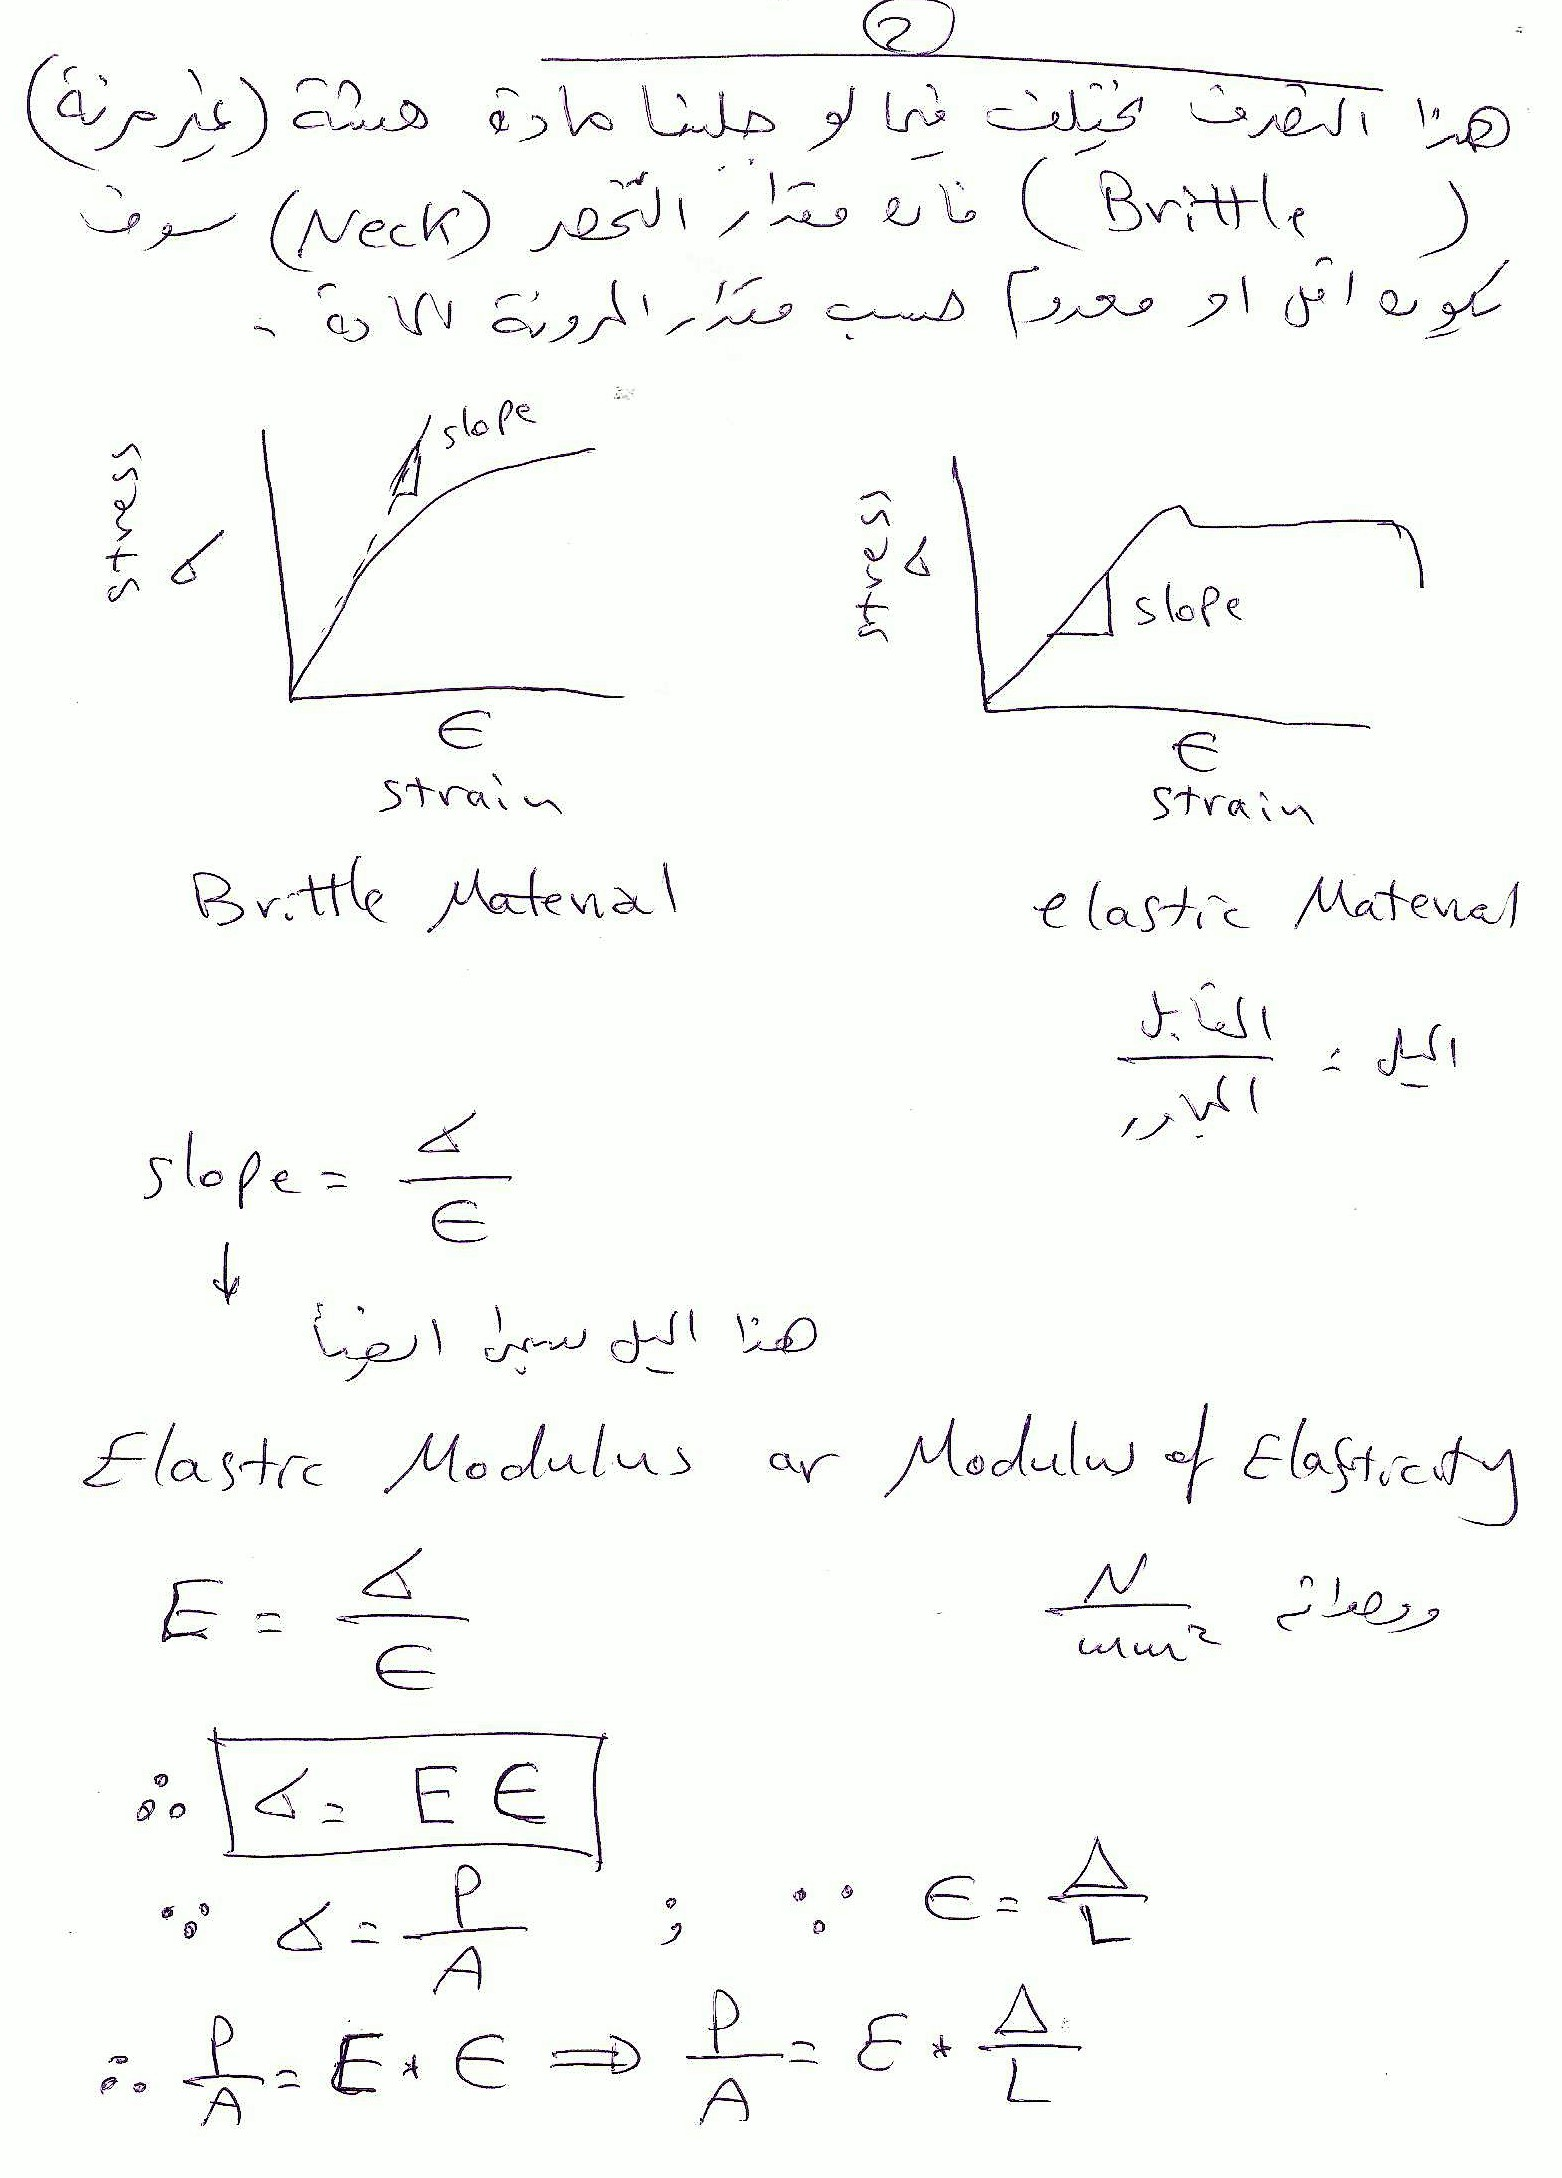 2
هذا التصرف يختلف فيما لو جلبنا مادة هشة (غير مرنة)
(Brittle) فان مقدار التخصر (Neck) سوف
يكون اقل او معدوم حسب مقدار المرونة للمادة .
stress σ slope
ϵ
strain
Brittle Material
stress σ slope
ϵ
strain
elastic Material
الميل = المقابل / المجاور
slope = σ / ϵ
↓
هذا الميل يسمى ايضاً
Elastic Modulus or Modulus of Elasticity
E = σ / ϵ ووحداته N / mm²
∴ σ = E ϵ
∵ σ = P / A ; ∵ ϵ = Δ / L
∴ P / A = E * ϵ ⇒ P / A = E * Δ / L